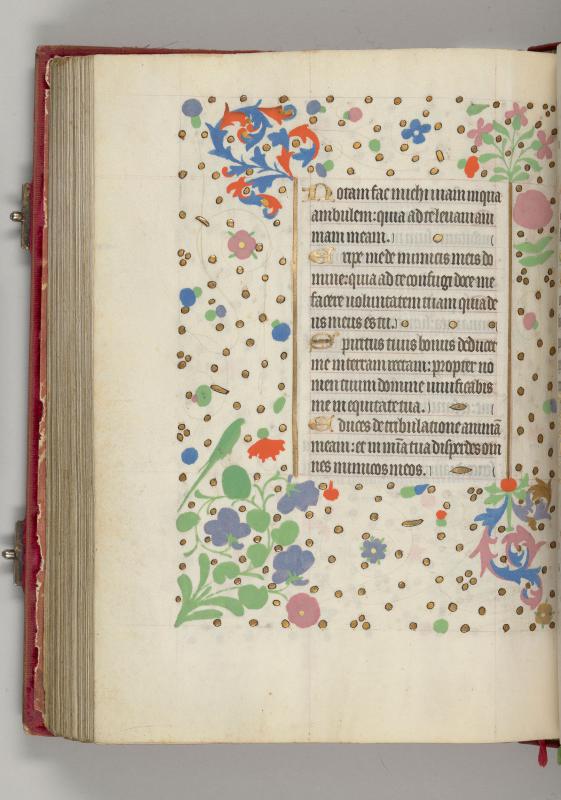 Notam fac michi viam in qua
ambulem: quia ad te levavi ani
mam meam.
Eripe me de inimicis meis do
mine: quia ad te confugi doce me
facere voluntatem tuam quia de
us meus es tu.
Spiritus tuus bonus deducet
me in terram rectam: propter no
men tuum domine vivificabis
me in equitate tua.
Educes de tribulatione animā
meam: et in mīa tua disperdes om
nes inimicos meos.